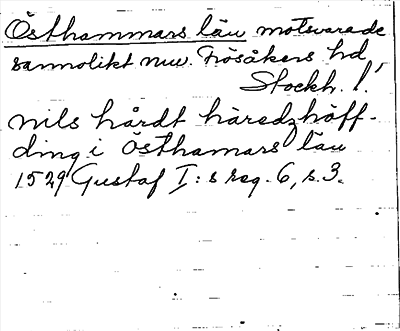 Östhammars län motsvarade
sannolikt nuv. Frösåkers hd,
Stockh. l.
Nils hårdt häredzhöff-
ding i Östhamars län
1529 Gustaf I:s reg. 6, s. 3.